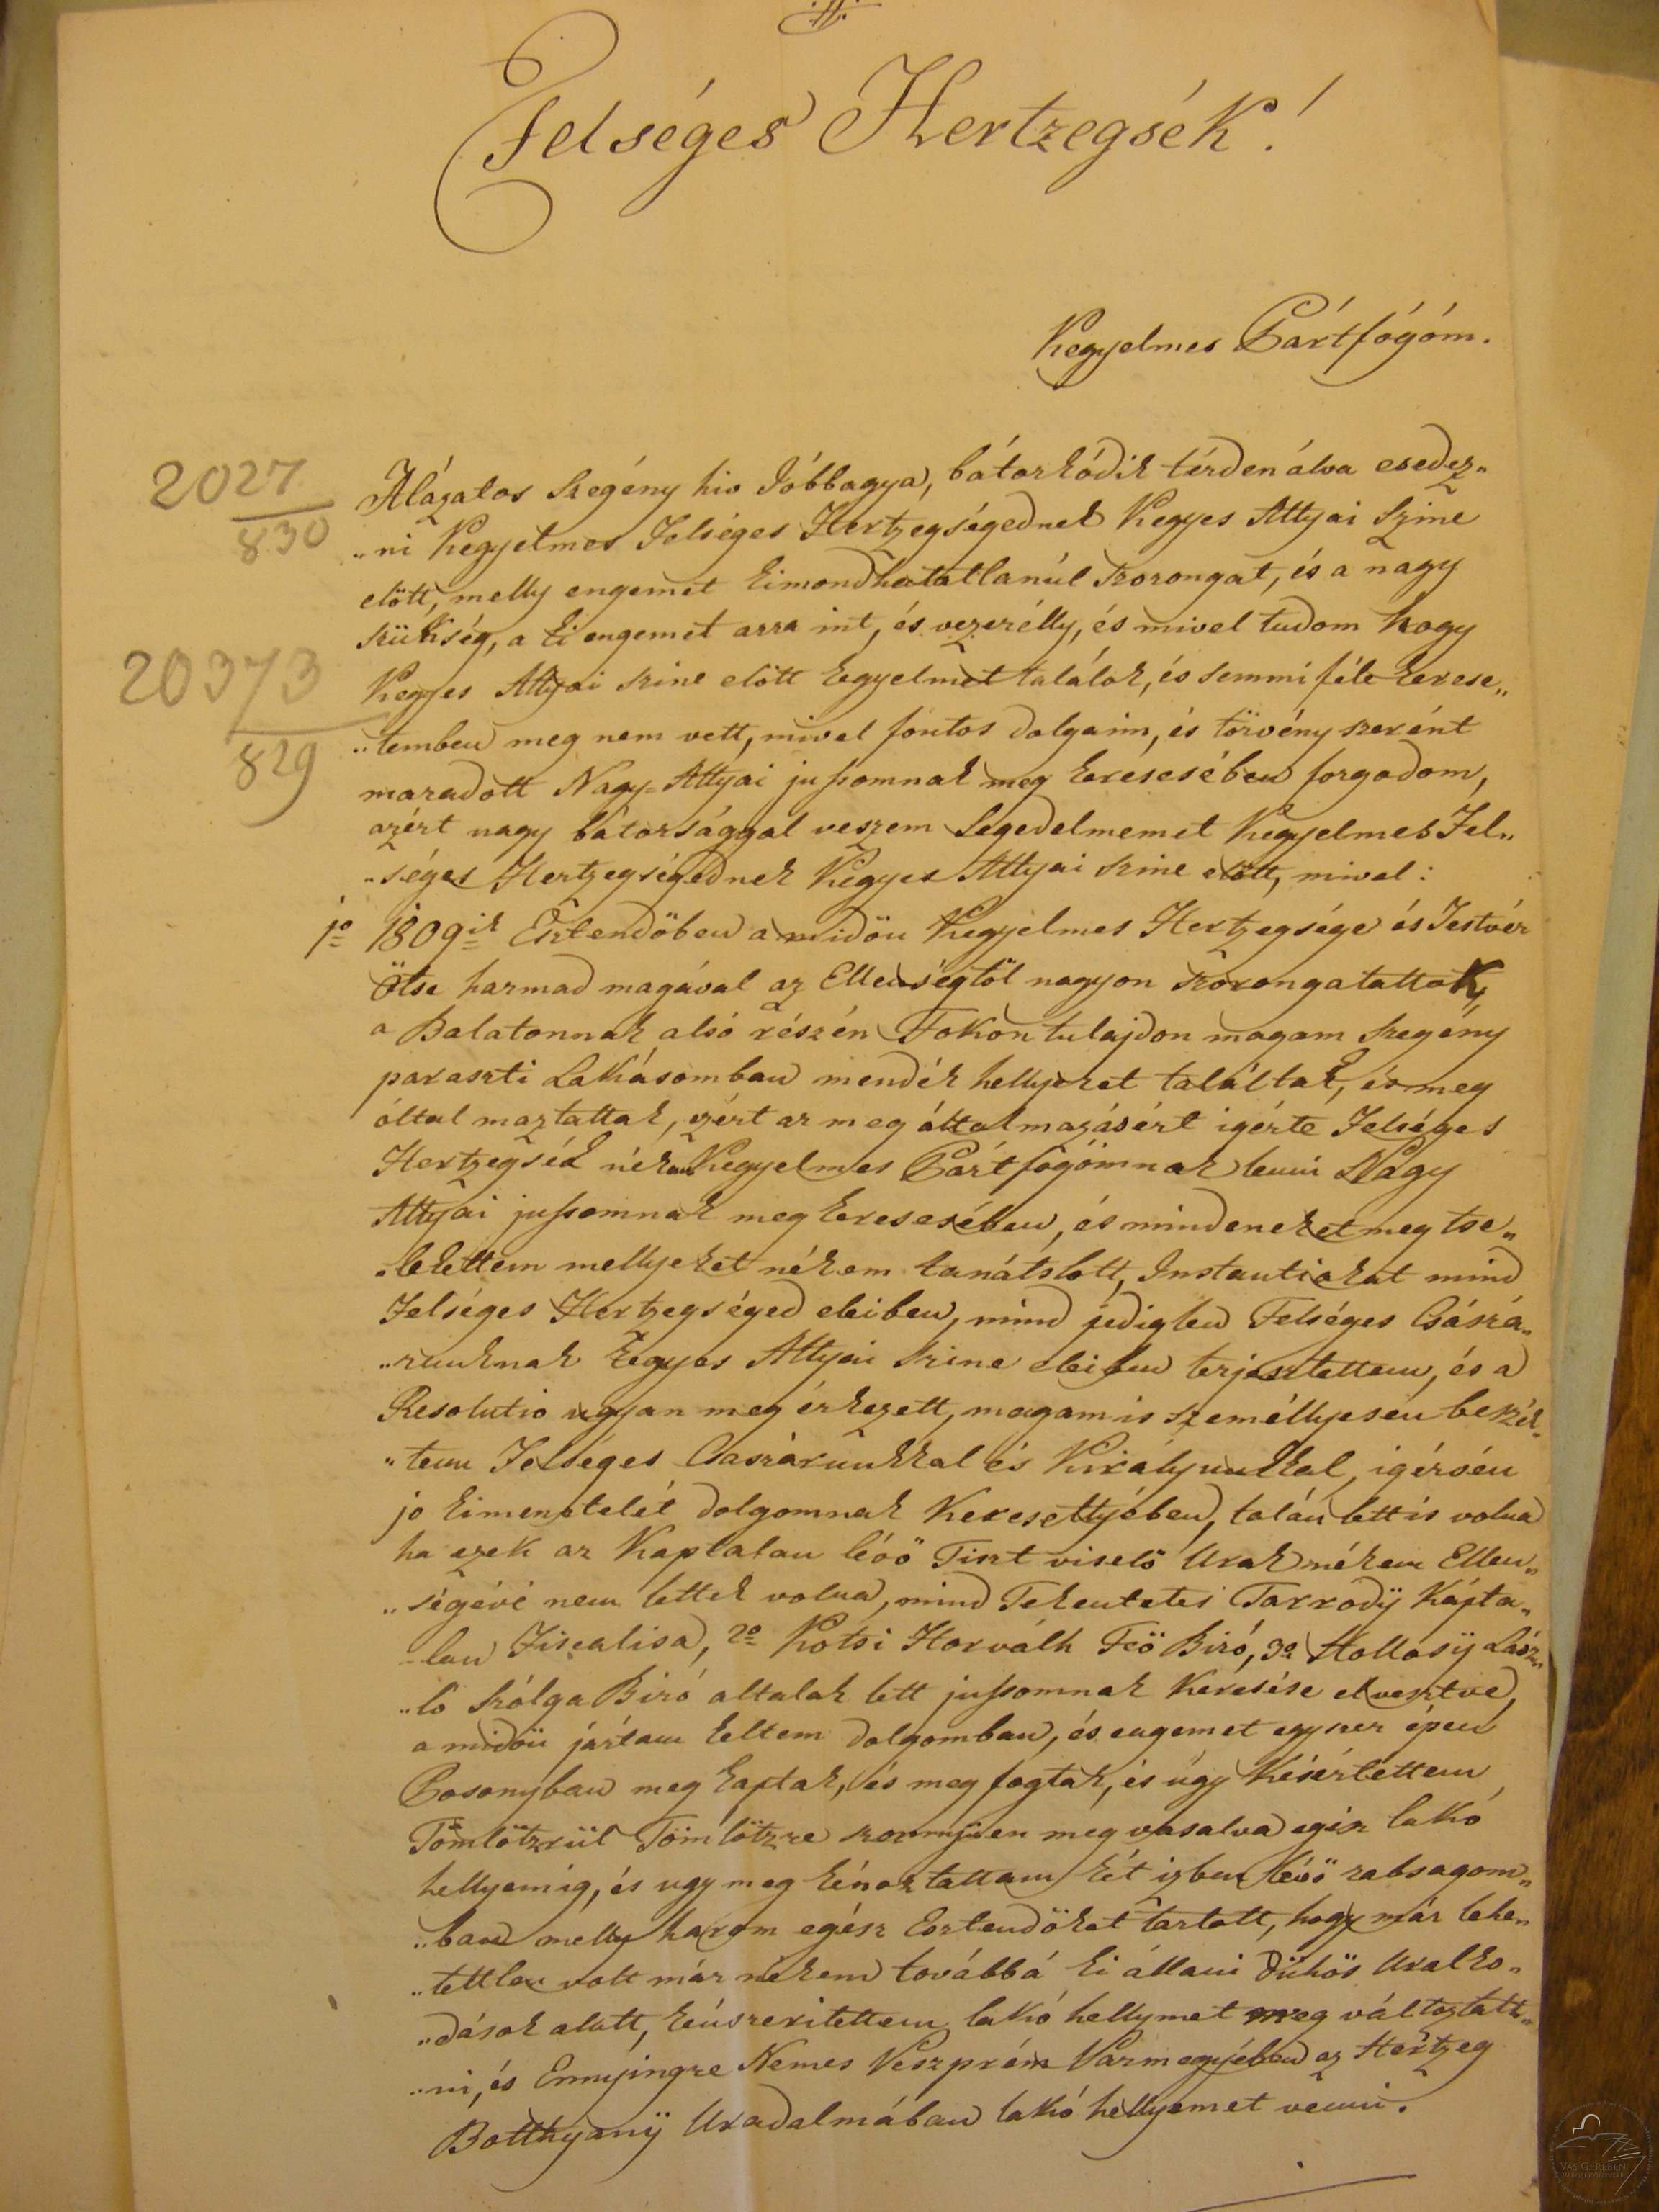 Felséges Hertzegsék!
Kegyelmes Pártfógóm.
2027
830
20373
829
Alázatos szegény hiv Jóbbagya, bátorkódik térden álva esedez„
„ni Kegyelmes Felséges Hertzegségednek Kegyes Attyai Szine
elött, melly engemet kimondhatatlanúl szorongat, és a nagy
szükség, a ki engemet arra int, és vezerélly, és mivel tudom hogy
Kegyes Attyai szine elött kegyelmet találok, és semmi féle kerese„
„temben meg nem vett, mivel fontos dolgaim, és törvény szerént
maradott Nagy-Attyai jussomnak meg keresesében forgodom,
azért nagy bátorsággal veszem Segedelmemet Kegyelmes Fel„
„séges Hertzegségednek Kegyes Attyai szine elött, mivel:
1o 1809ik Esztendöben a midön Kegyelmes Hertzegsége és Testvér
Ötse harmad magával az Ellenségtöl nagyon szorongatattak,
a Balatonnak alsó részén Fokon tulajdon magam szegény
paraszti Lakásomban mendék hellyeket találtak, és meg
óltal maztattak, ezért az meg óltalmazásért igérte Felséges
Hertzegsék nékem Kegyelmes Pártfógómnak lenni Nagy
Attyai jussomnak meg keresesében, és mindeneket meg tse„
„lekettem mellyeket nékem tanátslott, Instantiokat mind
Felséges Hertzegséged eleiben, mind pediglen Felséges Császá„
„runknak kegyes Attyai szine eleiben terjesztettem, és a
Resolutio ugyan meg érkezett, magam is személlyesen beszél„
„tem Felséges Csaszárunkkal és Királyunkkal, igérvén
jo kimenetelét dolgomnak Keresettyében, talán lett is volna
ha ezek az Kaptalan léöö Tiszt viselö Urak nékem Ellen„
„ségévé nem lettek volna, mind Tekentetes Tarrodÿ Kápta„
„lan Fiscalisa, 2o Kotsi Horváth Feö Biró, 3o Hollosÿ Lász„
„ló Szólga Biró altalak lett jussomnak Keresése elvesztve,
a midön jártam keltem dolgomban, és engemet egyszer épen
Posonyban meg kaptak, és meg fogtak, és úgy kesértettem
Tömlötzrül Tömlötzre szonnyüen meg vasalva egész lakó
hellyemig, és ugy meg kénoztattam két izben léöö rabsagom„
„ban melly három egész Esztendöket tartott, hogy már lehe„
„tettlen volt már nékem továbbá ki állani dühös Uralko„
„dások alatt, kénszeritettem lakó hellymet meg változtatt„
„ni, és Ennyingre Nemes Veszprém Vármegyében az Hertzeg
Botthyanÿ Uradalmában lakó hellyemet venni.
VAS GEREBEN